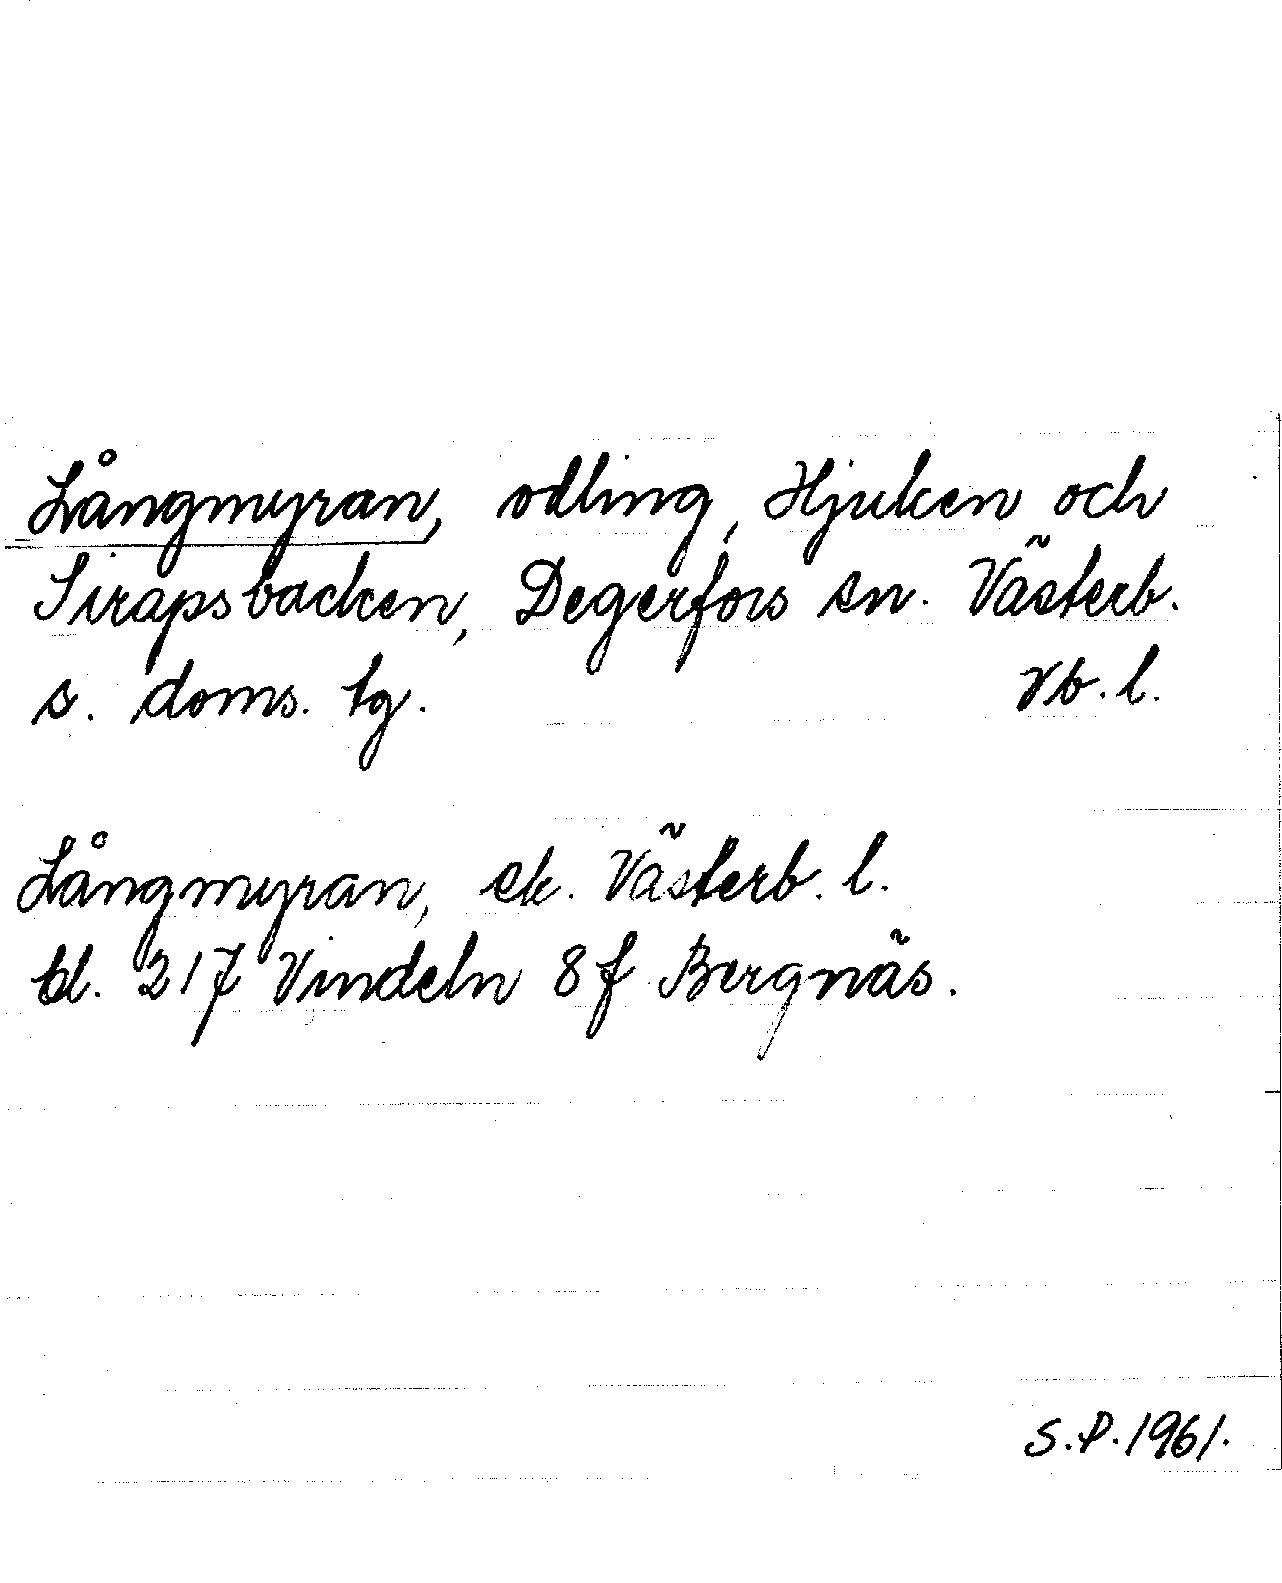 Långmyran, odling, Hjuken och
Sirapsbacken, Degerfors sn. Västerb.
s. doms. tg. Vb. l.
Långmyran, ek. Västerb. l.
bl. 217 Vindeln 8f Bergnäs.
S.P. 1961.